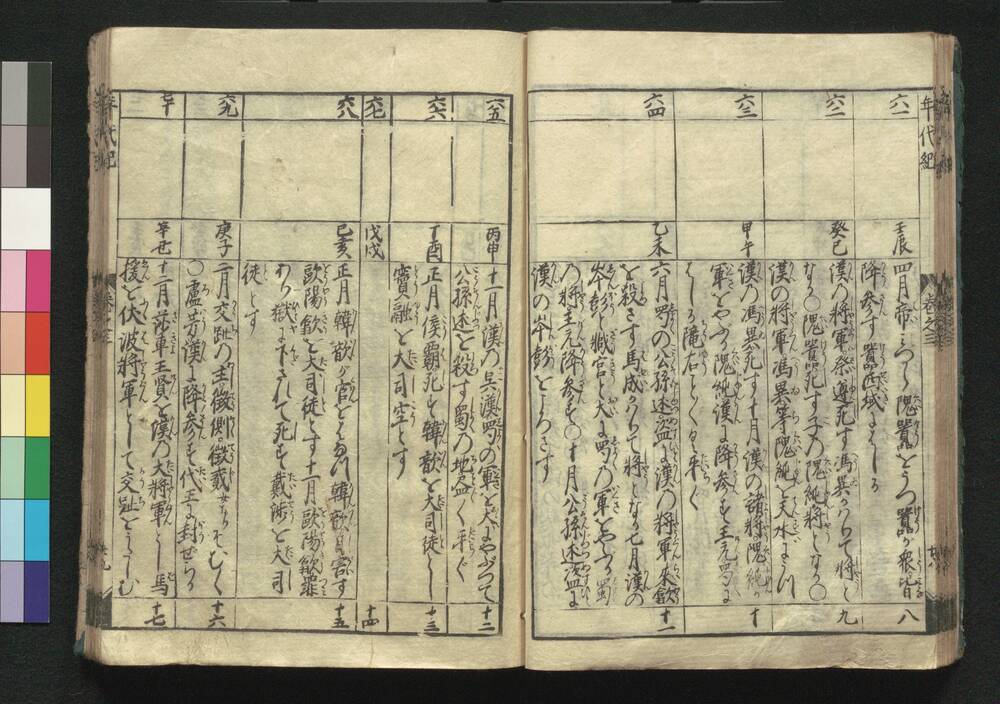 年代紀
巻之三
六一
壬辰
四月帝みづから隗囂をうつ囂が衆皆
降参す囂西城にはしる
八
六二
癸巳
漢の将軍祭遵死す馮異かはりて将と
なる〇隗囂死す子の隗純将となる〇
漢の将軍馮異等隗純を天水にうつ
九
六三
甲午
漢の馮異死す十月漢の諸将隗純が
軍をやぶる隗純漢に降参す王元蜀に
はしる隴右ことごとく平ぐ
十
六四
乙未
六月蜀の公孫述盗に漢の将軍来歙
を殺さす馬成かはりて将となる七月漢の
岑彭臧宮と大に蜀の軍をやぶる蜀
の将王元降参す〇十月公孫述盗に
漢の岑彭をころさす
十一
六五
丙申
十一月漢の呉漢蜀の軍を大にやぶつて
公孫述を殺す蜀の地益く平ぐ
十二
六六
丁酉
正月侯覇死す韓歆を大司徒とし
竇融を大司空とす
十三
六七
戊戌
十四
六八
己亥
正月韓歆が官をはぎ韓歆自害す
歐陽歙を大司徒とす十一月歐陽歙罪
あり獄に下されて死す戴渉を大司
徒とす
十五
六九
庚子
二月交趾の王徴側徴貳そむく
〇盧芳漢に降参す代王に封ぜらる
十六
七十
辛丑
十二月莎車王賢を漢の大将軍とし馬
援を伏波将軍として交趾をうたしむ
十七
年代紀
巻之三